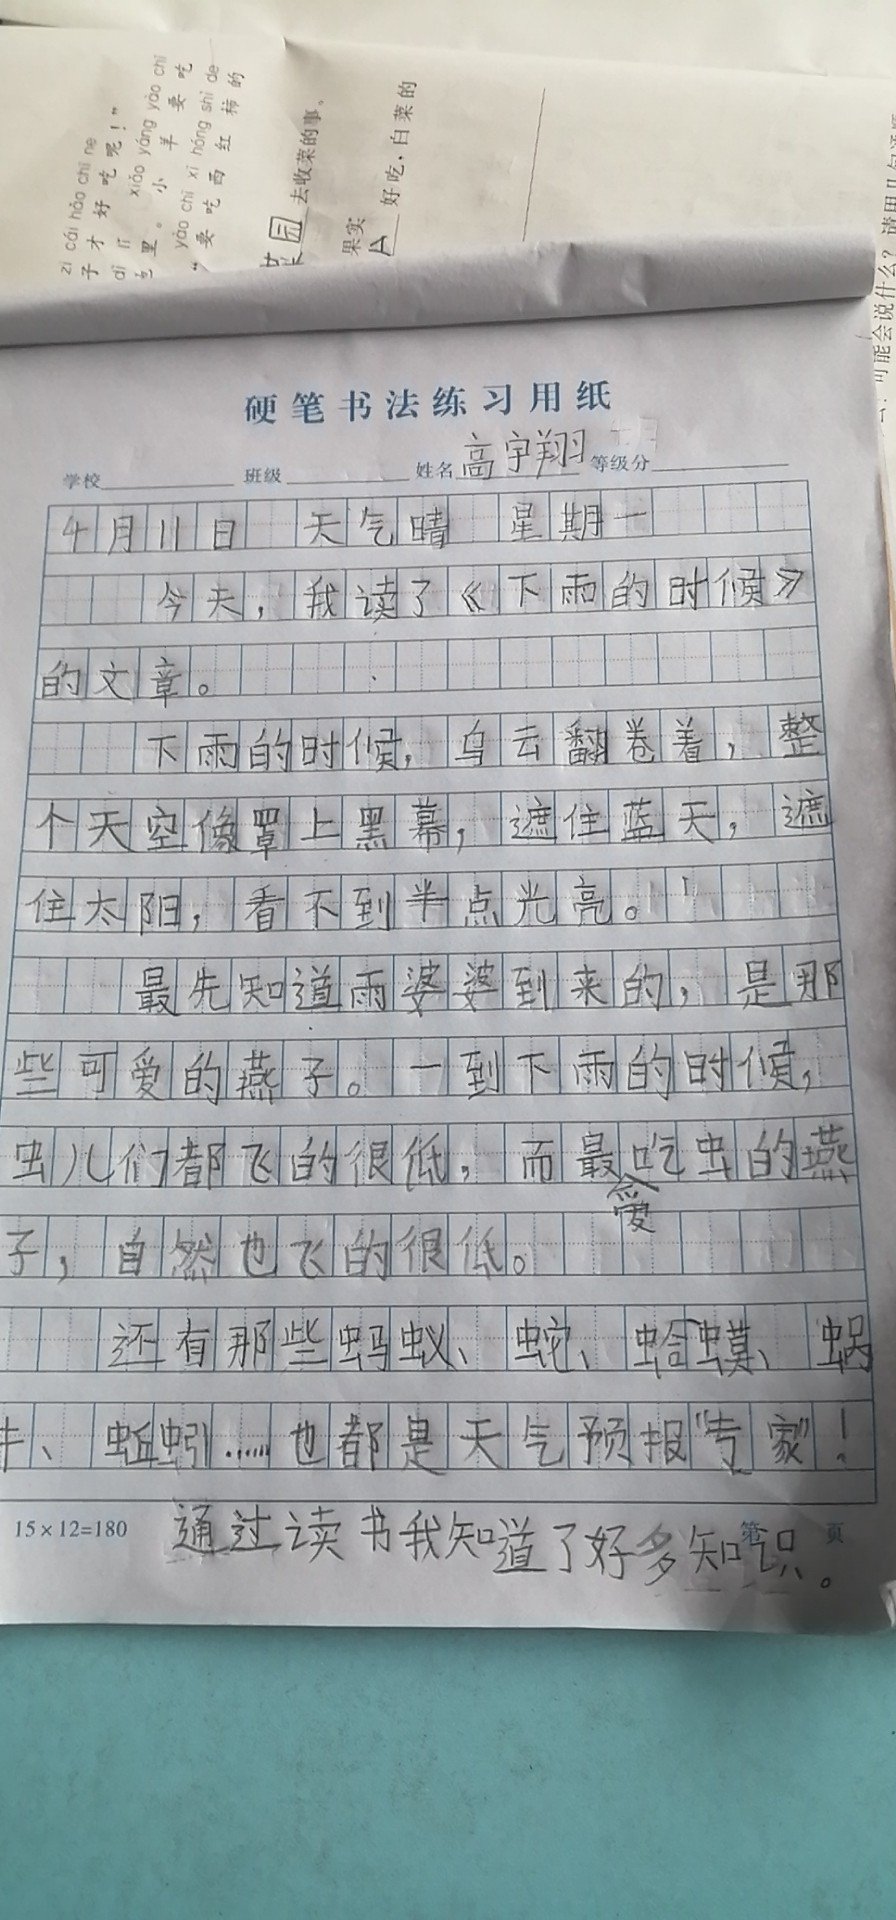 zi cái hǎo chī ne
子才好吃呢！”
dì lǐ xiǎo yáng yào chī
里。小羊要吃
yào chī xī hóng shì de
“要吃西红柿的
菜园去收菜的事。
果实
好吃，白菜的
可能会说什么？
硬笔书法练习用纸
学校 班级 姓名 高宇翔 等级分
4月11日 天气晴 星期一
今天，我读了《下雨的时候》
的文章。
下雨的时候，乌云翻卷着，整
个天空像罩上黑幕，遮住蓝天，遮
住太阳，看不到半点光亮。
最先知道雨婆婆到来的，是那
些可爱的燕子。一到下雨的时候，
虫儿们都飞的很低，而最爱吃虫的燕
子，自然也飞的很低。
还有那些蚂蚁、蛇、蛤蟆、蜗
牛、蚯蚓……也都是天气预报“专家”！
15×12=180 第 页
通过读书我知道了好多知识。